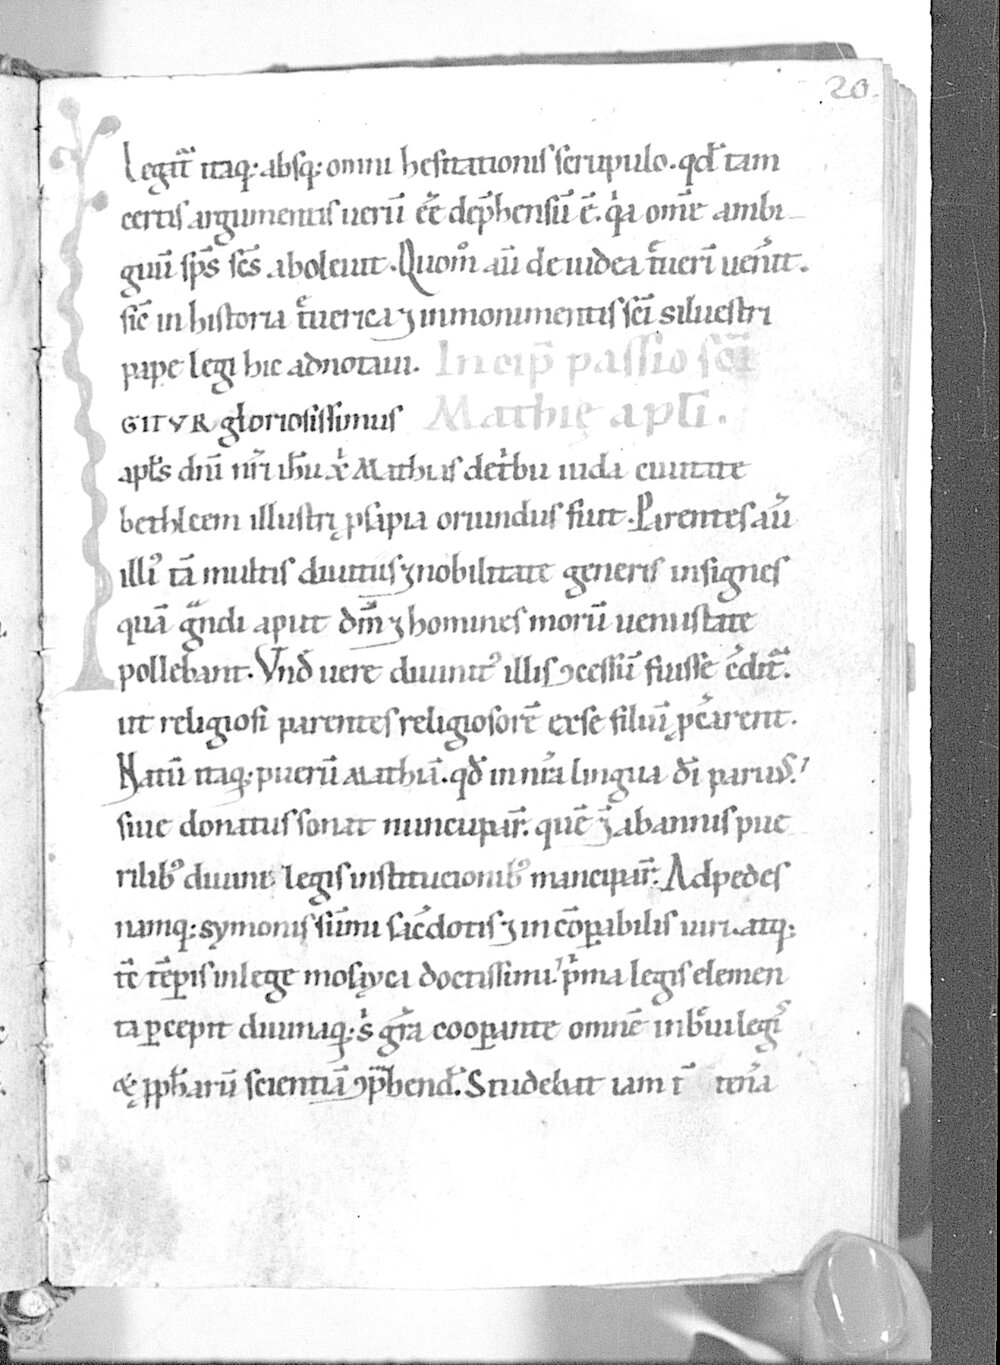 20.
Legat̄ itaq; absq; omni hesitationis scrupulo. qđ tam
certis argumentis uerū eē dep̄hensū ē. q̇a om̄e ambi
guū sp̄s sc̄s aboleuit. Quom̊ aū de iudea t̄ueri uener̄t.
sic in historia t̄uerica ⁊ in monumentis sc̄i siluestri
pape legi hic adnotaui. Incip̄ passio sc̄i
GITVR gloriosissimus Mathię apłi.
apłs dn̄i nr̄i ih̄u xp̄i Mathias de t̄bu iuda ciuitate
bethleem illustrę ꝓsapia oriundus fuit. Parentes aū
illiꝰ tā multis diuitiis ⁊ nobilitate generis insignes
quā gͣndi aput dm̄ ⁊ homines morū uenustate
pollebant. Vnđ uere diuinitꝰ illis ꝯcessū fuisse c̄ditᷓ.
ut religiosi parentes religiosorē ex se filiū ꝓcrarent.
Natū itaq; puerū Mathiā. qđ in nr̄a lingua dī paruꝰ.
siue donatus sonat nuncupar̄. quē ab annis pue
rilibꝰ diuinę legis institucionibꝰ mancipar̄. Ad pedes
namq; symonis sūmi sac̄dotis ⁊ incōꝑabilis uiri. atq;
tc̄ tēꝑis in lege mosayca doctissimi. p̄ma legis elemen
ta ꝑcepit diuinaq; s̄ gr̄a cooꝑante omnē in br̄ui legis
& ꝓph̄arū scientiā ꝯp̄hendit. Studebat iam